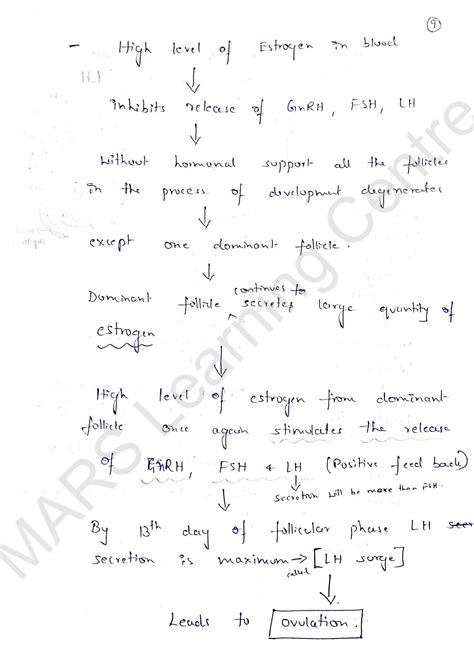 9
- High level of Estrogen in blood
inhibits release of GnRH, FSH, LH
without hormonal support all the follicles
in the process of development degenerates
except one dominant follicle.
continues to
Dominant follicle ^ secretes large quantity of
estrogen
High level of estrogen from dominant
follicle once again stimulates the release
of GnRH, FSH & LH (Positive feed back)
secretion will be more than FSH.
By 13th day of follicular phase LH
secretion is maximum → [LH surge]
called
Leads to ovulation.
MARS Learning Centre